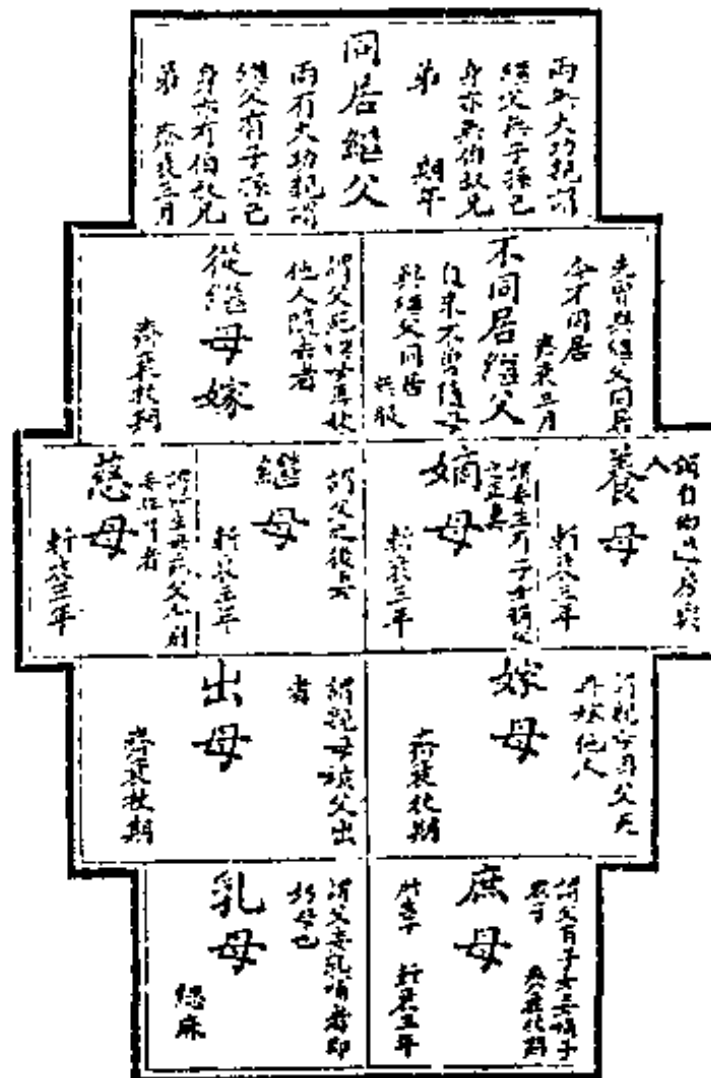 兩無大功親謂
繼父無子孫己
身亦無伯叔兄
弟 期年
同居繼父
兩有大功親謂
繼父有子孫己
身亦有伯叔兄
弟 齊衰三月
先曾與繼父同居
今不同居
齊衰三月
不同居繼父
自來不曾隨母
與繼父同居
無服
謂父死繼母再嫁
他人隨去者
從繼母嫁
齊衰杖期
謂自幼過房與
人
養母
斬衰三年
謂妾生子女稱父
正妻
嫡母
斬衰三年
謂父
繼母
斬衰三年
謂所生母死父令別
妾撫育者
慈母
斬衰三年
謂親母因父死
再嫁他人
嫁母
齊衰杖期
謂親母被父出
者
出母
齊衰杖期
謂父有子女妾嫡子
眾子 齊衰杖期
庶母
所生子 斬衰三年
謂父妾乳哺者即
奶母也
乳母
緦麻